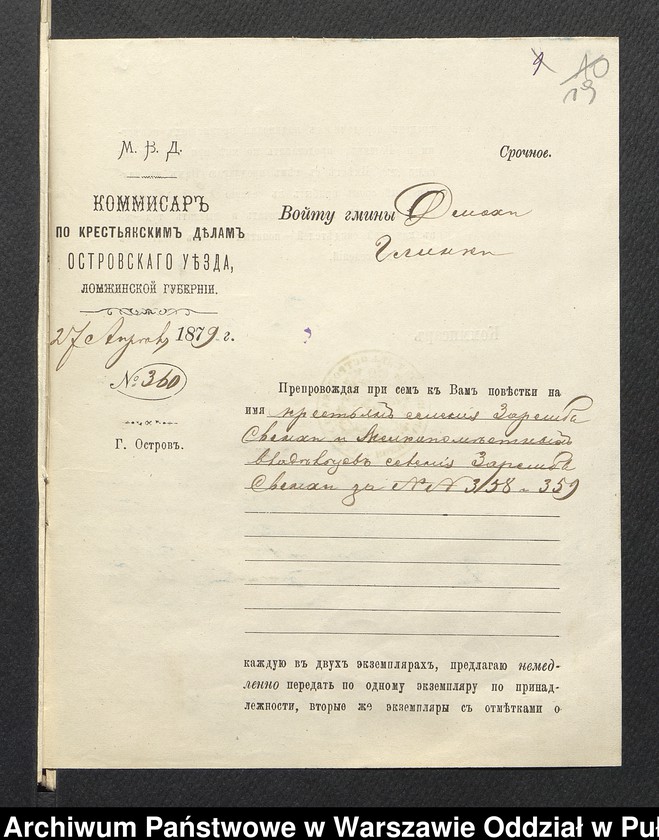 10
19
М. В. Д.
Срочное.
КОММИСАРЪ
ПО КРЕСТЬЯНСКИМЪ ДѢЛАМЪ
ОСТРОВСКАГО УѢЗДА,
ЛОМЖИНСКОЙ ГУБЕРНІИ.
27 Апрѣля 1879 г.
№ 360
Г. Островъ.
Войту гмины
Глинки
Препровождая при семъ къ Вамъ повѣстки на
имя крестьянъ селенія Заремба
и мелкопомѣстныхъ
владѣльцевъ селенія Заремба
за №№ 358 и 359
каждую въ двухъ экземплярахъ, предлагаю немед-
ленно передать по одному экземпляру по принад-
лежности, вторые же экземпляры съ отмѣтками о
Archiwum Państwowe w Warszawie Oddział w Puł